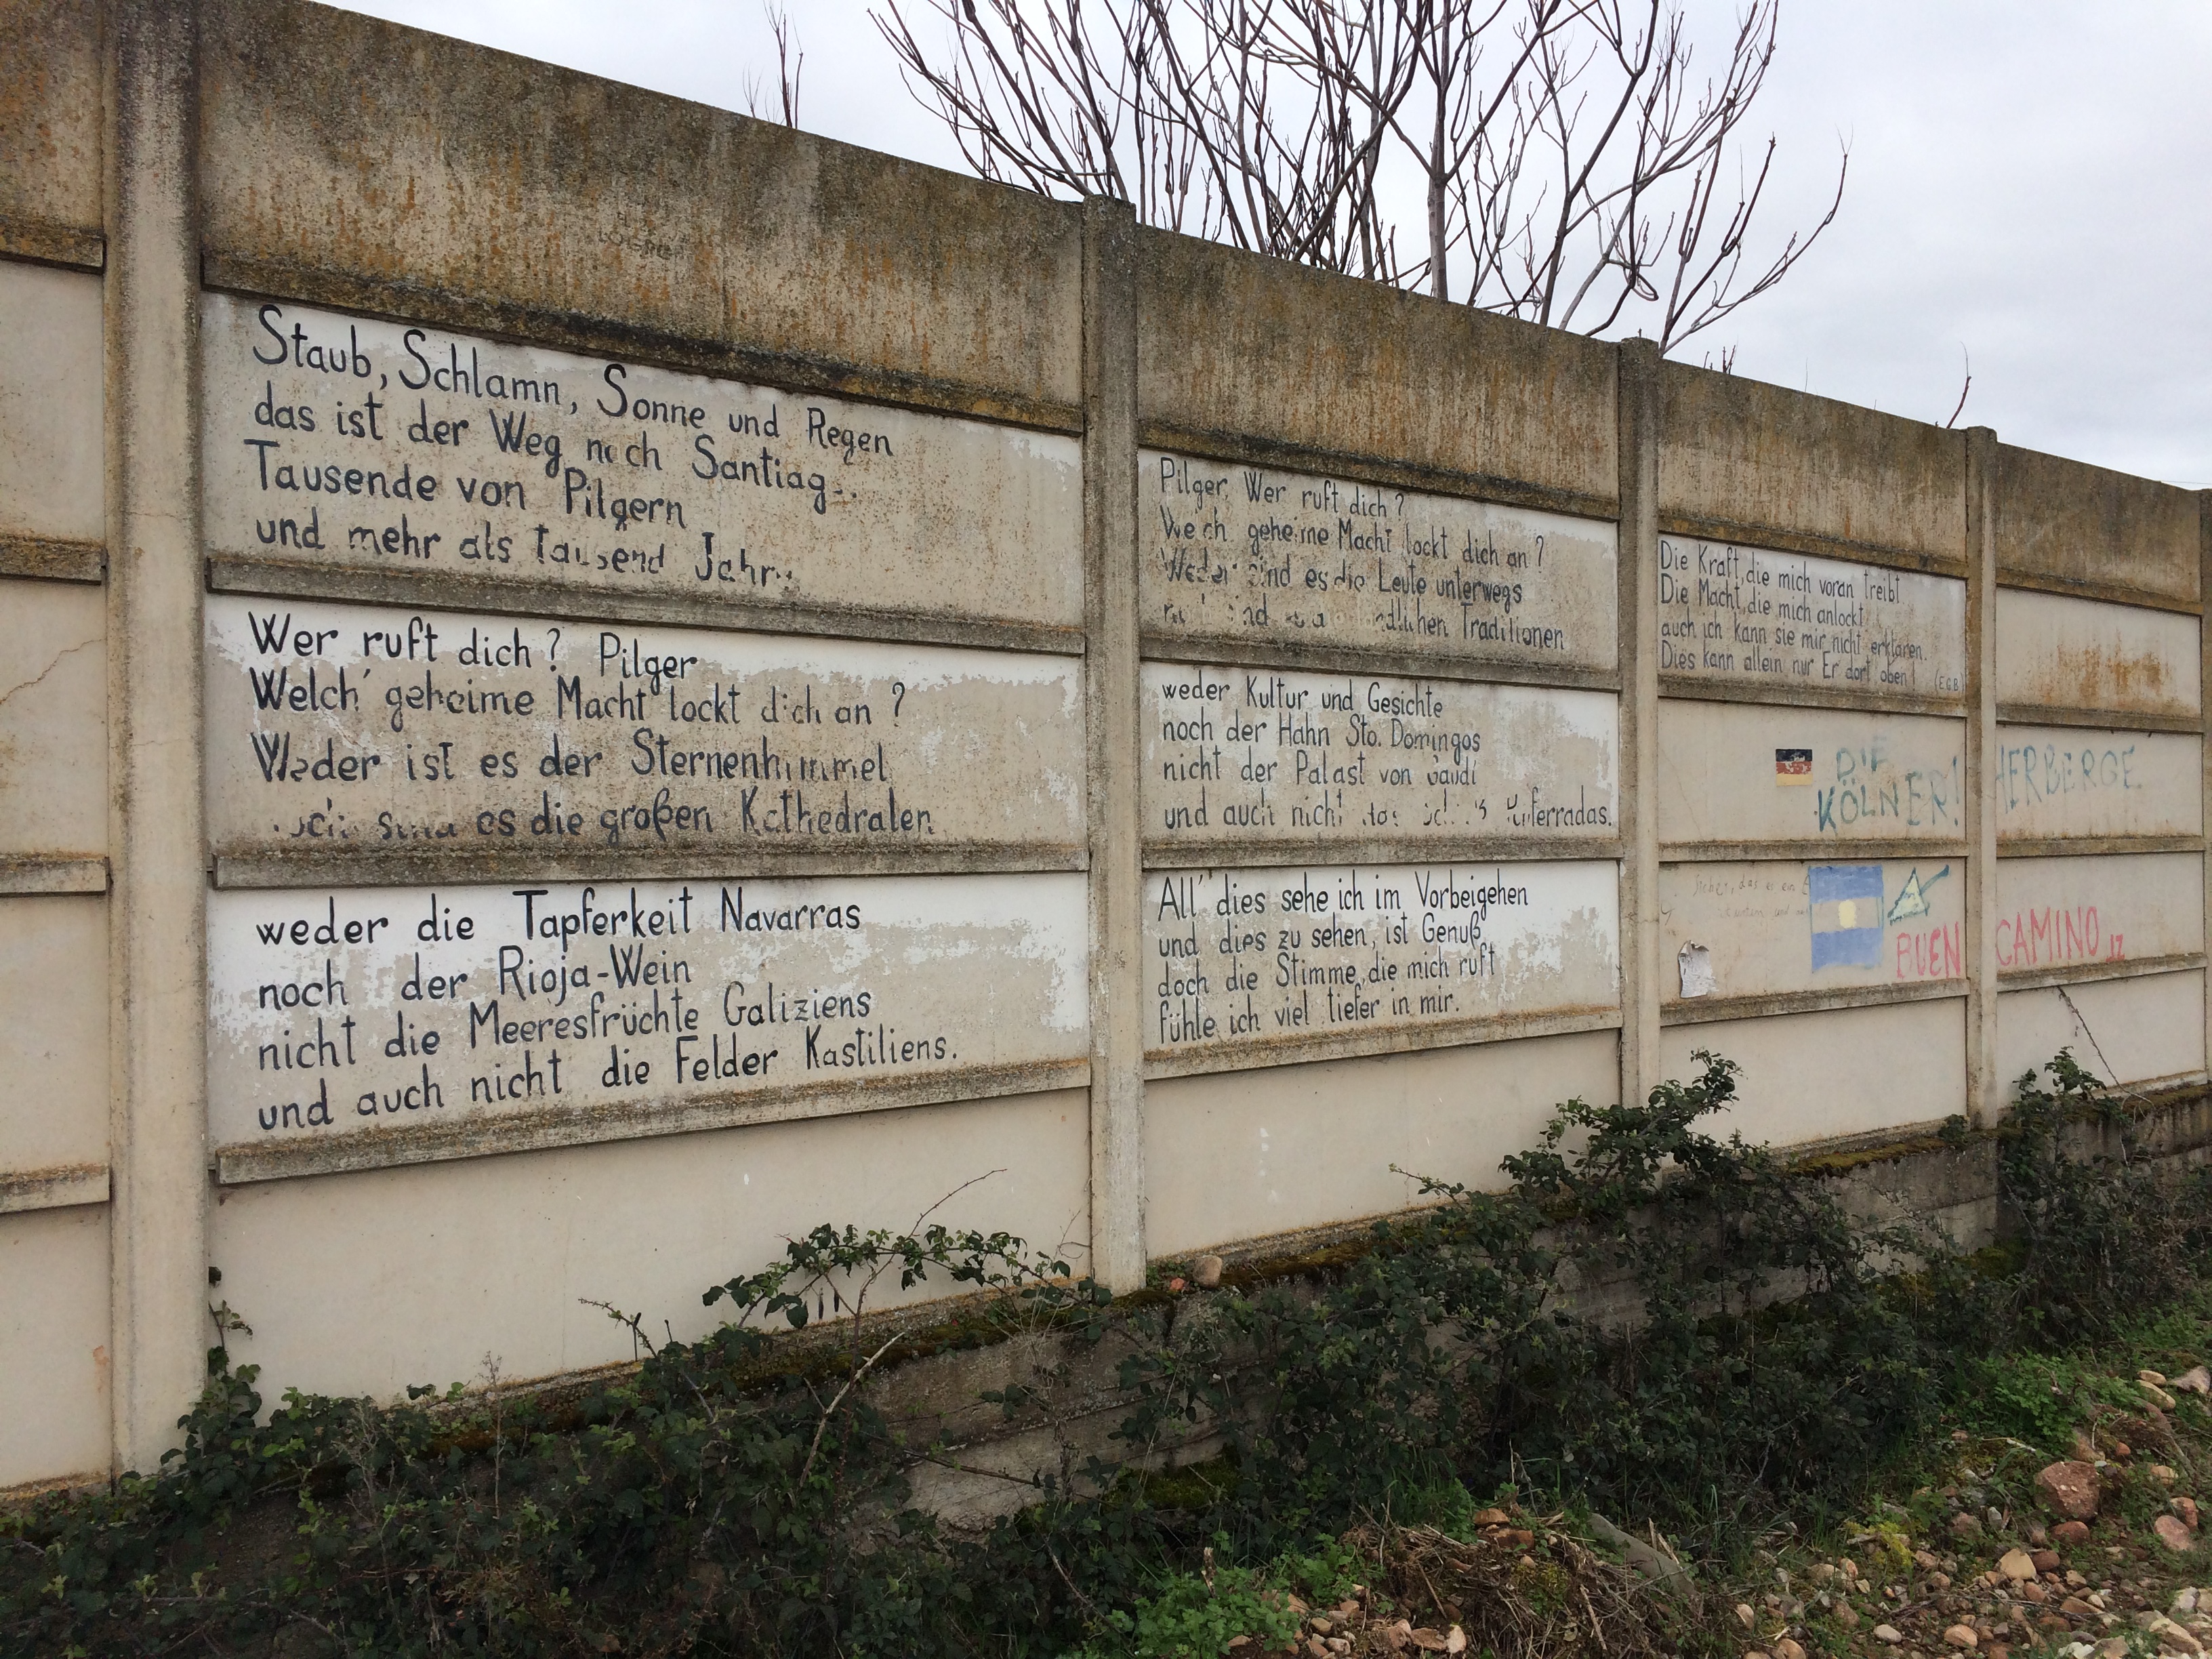 Staub, Schlamn, Sonne und Regen
das ist der Weg nach
Tausende von Pilgern
und mehr als Tausend
Wer ruft dich? Pilger
Welch' geheime Macht lockt dich an?
Weder ist es der Sternenhimmel
es die großen Kathedralen
weder die Tapferkeit Navarras
noch der Rioja-Wein
nicht die Meeresfrüchte Galiziens
und auch nicht die Felder Kastiliens.
Pilger, Wer ruft dich?
geheime Macht lockt dich an?
Weder sind es die Leute unterwegs
Traditionen
weder Kultur und Gesichte
noch der Hahn Sto. Domingos
nicht der Palast von Gaudí
und auch nicht
All' dies sehe ich im Vorbeigehen
und dies zu sehen, ist Genuß,
doch die Stimme, die mich ruft
fühle ich viel tiefer in mir.
Die Kraft, die mich voran treibt
Die Macht, die mich anlockt
auch ich kann sie mir nicht erklären.
Dies kann allein nur Er dort oben! (E.G.B)
DIE
KÖLNER! HERBERGE.
BUEN CAMINO